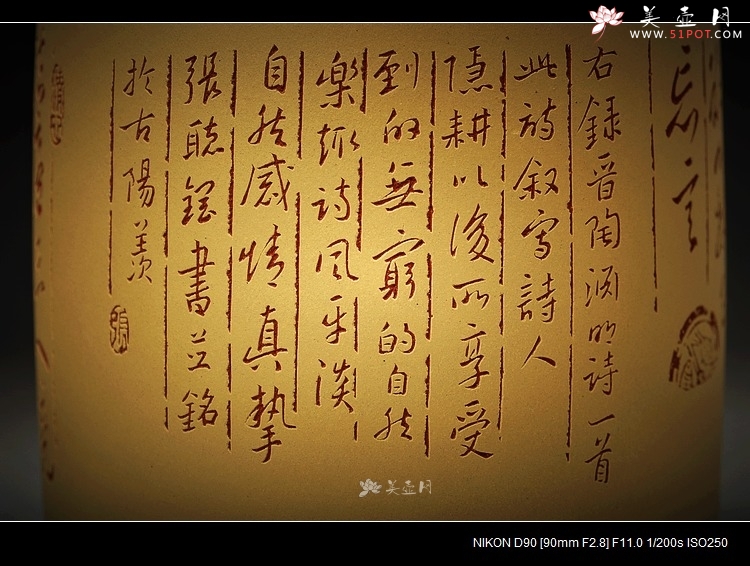 美壶网
WWW.51POT.COM
忘言
右録晋陶渊明诗一首
此诗叙写詩人
隱耕以後所享受
到的無窮的自然
樂趣诗风平淡
自然感情真摯
張聴鋼書並銘
於古陽羡
張
美壶网
NIKON D90 [90mm F2.8] F11.0 1/200s ISO250